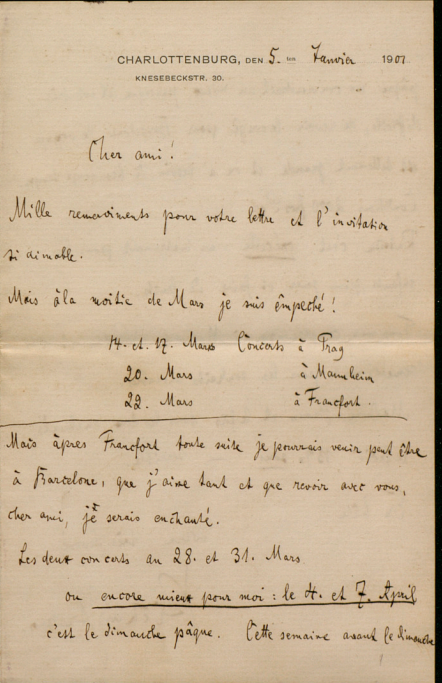 CHARLOTTENBURG, DEN 5. ten Janvier 1901
KNESEBECKSTR. 30.
Cher ami!
Mille remerciments pour votre lettre et l'invitation
si aimable.
Mais àla moitie de Mars je suis êmpeché!
14. et. 17. Mars Concerts à Prag
20. Mars à Mannheim
22. Mars à Francfort.
Mais àpres Francfort toute suite je pourrais venir peut être
à Barcelone, que j'aime tant et que revoir avec vous,
cher ami, je serais enchanté.
Les deux concerts au 28. et 31. Mars
ou encore mieux pour moi: le 4. et 7. April
c'est le dimanche pâque. Cette semaine avant le dimanche